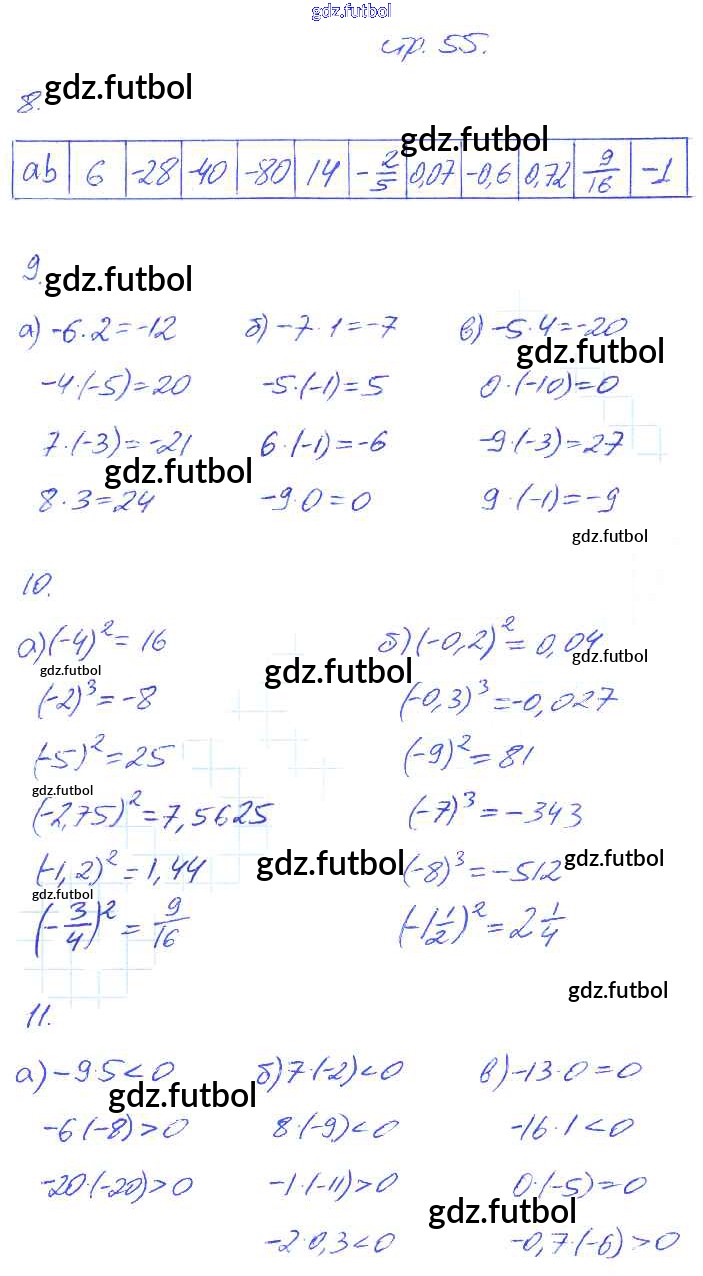 gdz.futbol
стр. 55.
8. gdz.futbol
gdz.futbol
ab 6 -28 -40 -80 14 -2/5 0,07 -0,6 0,72 9/16 -1
9. gdz.futbol
а) -6·2=-12 б) -7·1=-7 в) -5·4=-20
gdz.futbol
-4·(-5)=20 -5·(-1)=5 0·(-10)=0
7·(-3)=-21 6·(-1)=-6 -9·(-3)=27
gdz.futbol
8·3=24 -9·0=0 9·(-1)=-9
gdz.futbol
10.
а) (-4)²=16 б) (-0,2)²=0,04
gdz.futbol gdz.futbol gdz.futbol
(-2)³=-8 (-0,3)³=-0,027
(-5)²=25 (-9)²=81
gdz.futbol
(-2,75)²=7,5625 (-7)³=-343
(-1,2)²=1,44 gdz.futbol (-8)³=-512 gdz.futbol
gdz.futbol
(-3/4)²=9/16 (-1 1/2)²=2 1/4
gdz.futbol
11.
а) -9·5<0 б) 7·(-2)<0 в) -13·0=0
gdz.futbol
-6(-8)>0 8·(-9)<0 -16·1<0
-20·(-20)>0 -1·(-11)>0 0·(-5)=0
gdz.futbol
-2·0,3<0 -0,7·(-6)>0